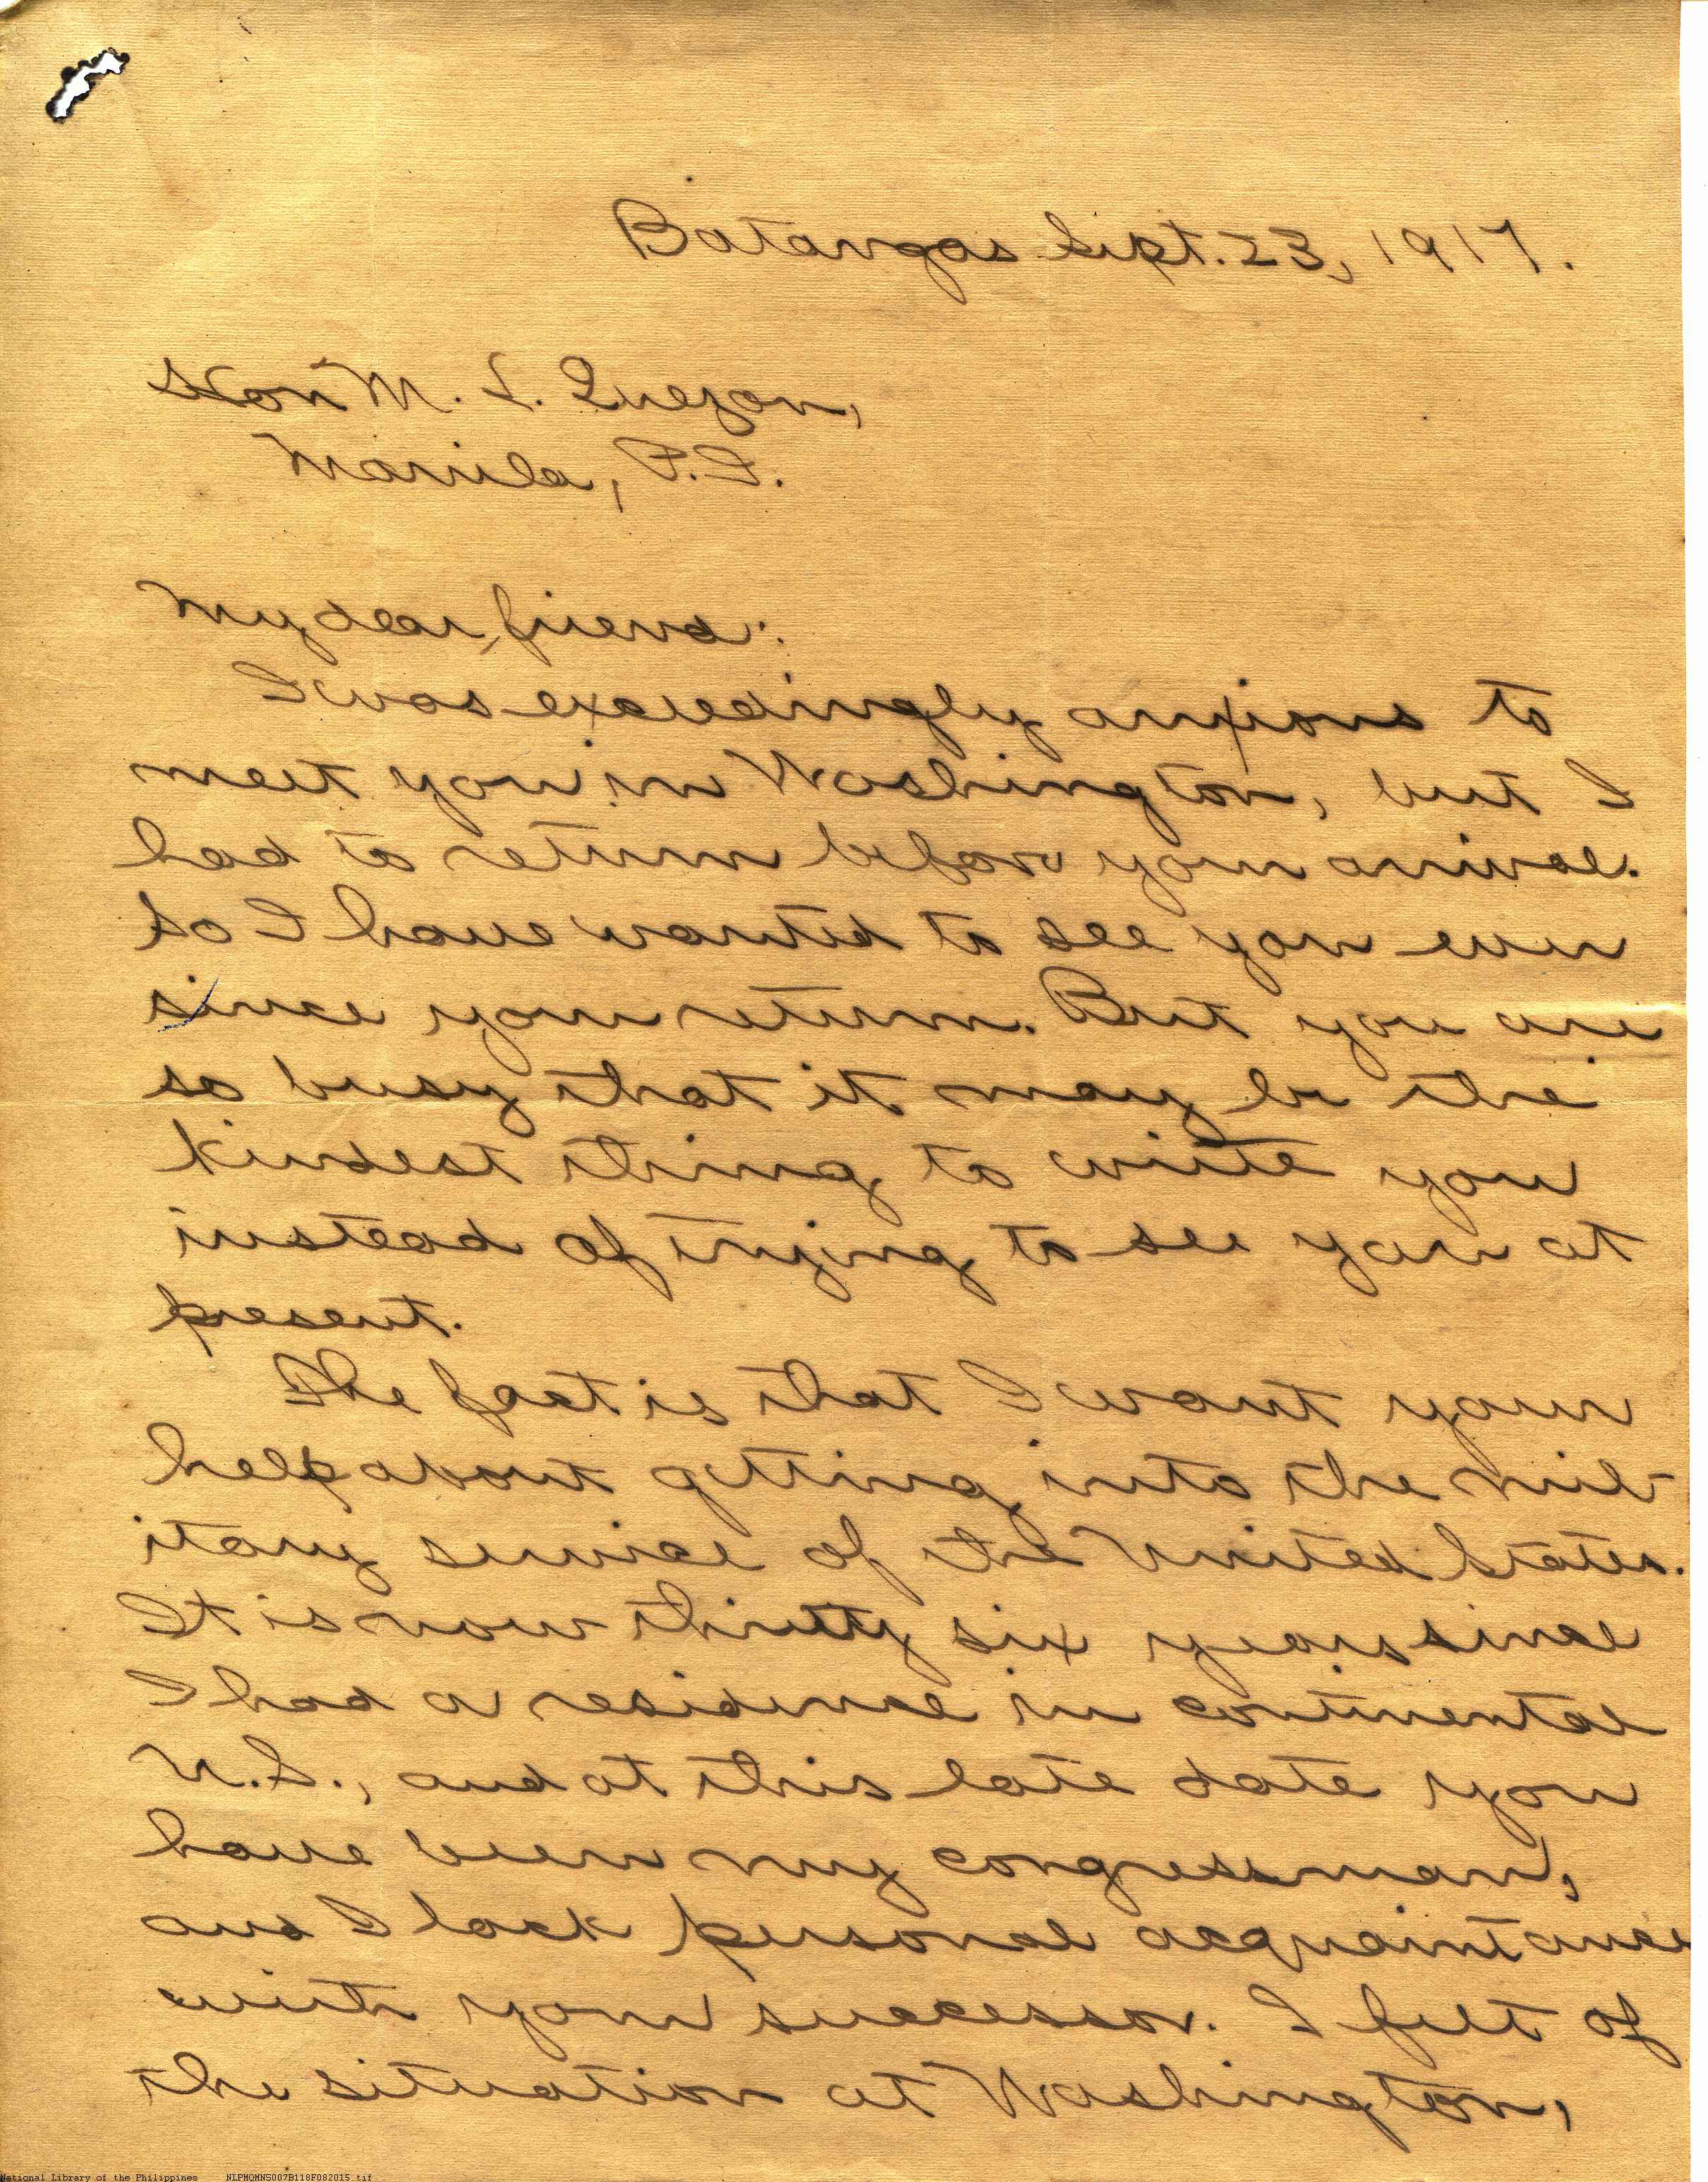 Batangas Sept. 23, 1917.
Hon M. L. Quezon,
Manila, P.I.
My dear friend:
I was exceedingly anxious to
meet you in Washington, but I
had to return before your arrival.
So I have wanted to see you ever
since your return. But you are
so busy that it may be the
kindest thing to write you
instead of trying to see you at
present.
The fact is that I want your
help about getting into the mil-
itary service of the United States.
It is now thirty six years since
I had a residence in continental
U.S., and at this late date you
have been my congressman,
and I lack personal acquaintance
with your successor. I felt of
the situation at Washington,
National Library of the Philippines NLPMQMNS007B118F082015.tif